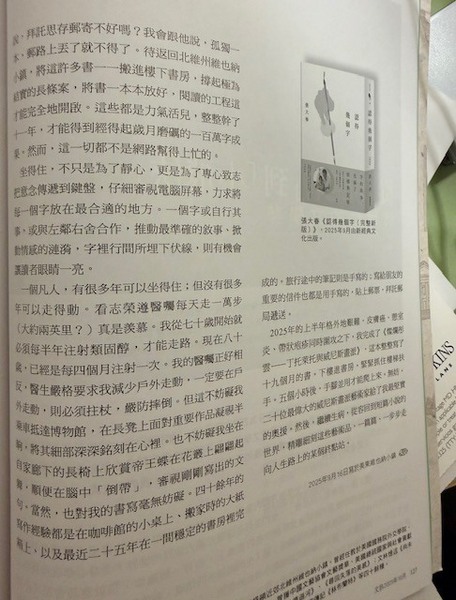 說、拜託思存郵寄不好嗎？我會跟他說，孤獨一
本、郵路上丟了就不得了。待返回北維州維也納
小鎮，將這許多書一一搬進樓下書房，撐起極為
結實的長條案，將書一本本放好，閱讀的工程這
才能完全地開啟。這些都是力氣活兒，整整幹了
十一年，才能得到經得起歲月磨礪的一百萬字成
果。然而，這一切都不是網路幫得上忙的。
坐得住，不只是為了靜心，更是為了專心致志
把意念傳遞到鍵盤，仔細審視電腦屏幕，力求將
每一個字放在最合適的地方。一個字或自行其
事、或與左鄰右舍合作，推動最準確的敘事、掀
動情感的漣漪，字裡行間所埋下伏線，則有機會
讓讀者眼睛一亮。
一個凡人，有很多年可以坐得住；但沒有很多
年可以走得動。看志榮遵醫囑每天走一萬步
（大約兩英里？）真是羨慕。我從七十歲開始就
必須每半年注射類固醇，才能走路。現在八十
歲，已經是每四個月注射一次。我的醫囑正好相
反，醫生嚴格要求我減少戶外走動，一定要在戶
外走動，則必須拄杖，嚴防摔倒。但這不妨礙我
乘車抵達博物館，在長凳上面對重要作品凝視半
晌，將其細部深深銘刻在心裡。也不妨礙我坐在
自家廊下的長椅上欣賞帝王蝶在花叢上翩翩起
舞，順便在腦中「倒帶」，審視剛剛寫出的文
句。當然，也對我的書寫毫無妨礙。四十餘年的
寫作經驗都是在咖啡館的小桌上、搬家時的大紙
箱上、以及最近二十五年在一間穩定的書房裡完
認得
幾個字
張大春
張大春《認得幾個字〔完整新
版〕》，2025年9月由新經典文
化出版。
成的。旅行途中的筆記則是手寫的；寫給朋友的
重要的信件也都是用手寫的，貼上郵票，拜託郵
局遞送。
2025年的上半年格外地艱難，皮膚癌、唇竇
炎、帶狀疱疹同時圍攻之下，我完成了《燦爛彤
雲——丁托萊托與威尼斯畫派》，這本整整寫了
十九個月的書，下樓進書房，緊緊抓住樓梯扶
手，五個小時後，手腳並用才能爬上來，無妨，
二十位最偉大的威尼斯畫派藝術家給了我最堅實
的奧援。然後，繼續生病，從容回到短篇小說的
世界，精雕細刻這些藝術品，一篇篇、一步步走
向人生路上的某個終點站。
2025年9月16日寫於美東維也納小鎮
文訊2025年10月 127
KINS
LANE